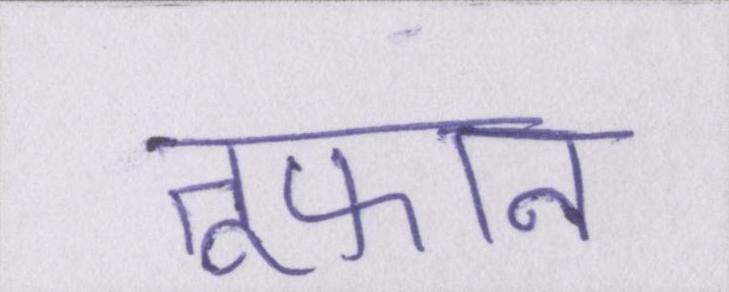 तूफान